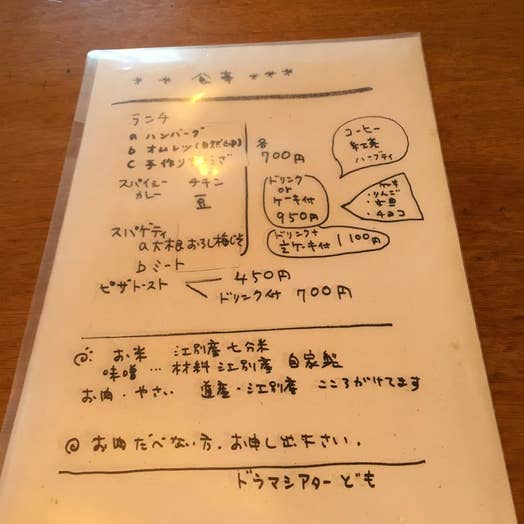 ＊ ＊ 食事 ＊＊＊
ランチ
a ハンバーグ
b オムレツ(自然卵)
c 手作りぎょうざ
各
700円
スパイシー チキン
カレー 豆
スパゲティ
a 大根おろし梅じそ
b ミート
ドリンク
or
ケーキ付
950円
ドリンク+
ケーキ付 1100円
コーヒー
紅茶
ハーブティ
ケーキ
・りんご
・チョコ
ピザトースト 450円
ドリンク付 700円
お米 江別産 七分米
味噌 … 材料 江別産 自家製
お肉・やさい 道産・江別産 こころがけてます
お肉たべない方、お申し出下さい。
ドラマシアターども